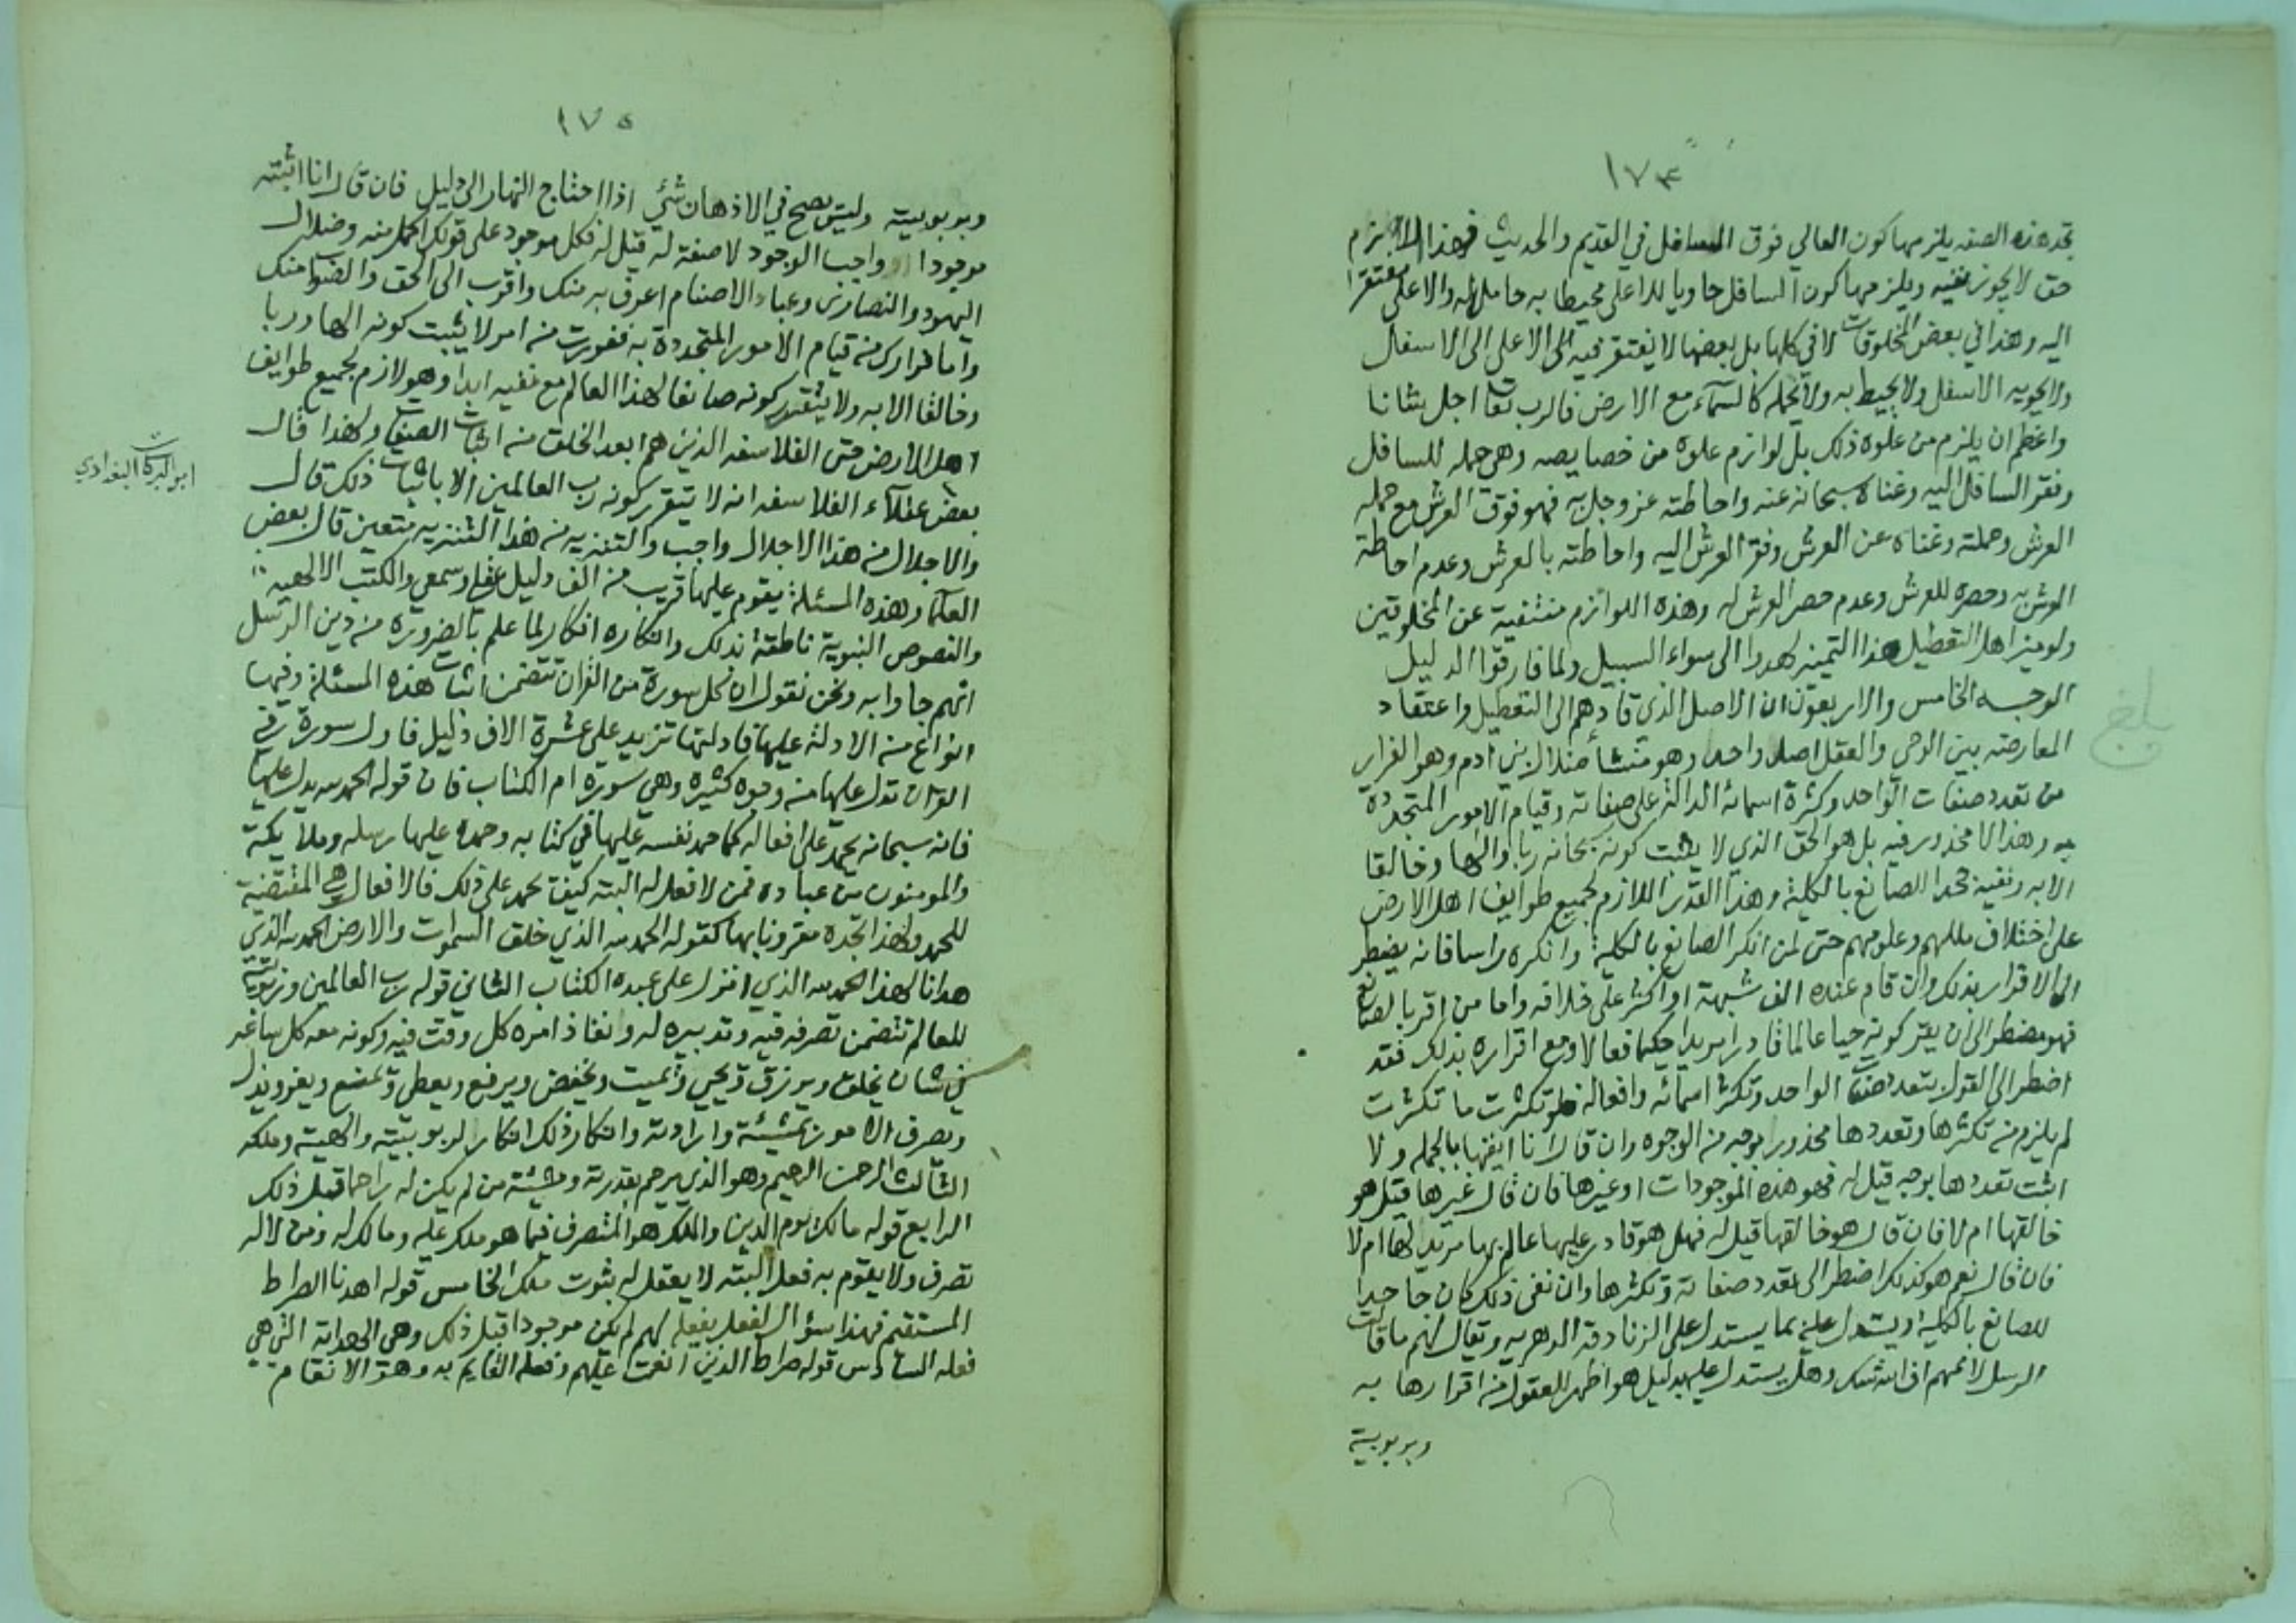 ١٧٤
تجد هذه الصفه يلزمها كون العالي فوق السافل في القديم والحديث فهذا اللازم
حق لا يجوز نفيه ويلزمها كون السافل حاويا للاعلى محيطا به حاملا له والاعلى مفتقرا
اليه وهذا في بعض المخلوقات لا في كلها بل بعضها لا يفتقر فيه الى الاعلى الى الاسفل
ولا يحويه الاسفل ولا يحيط به ولا يحمله كالسماء مع الارض فالرب تعالى اجل شانا
واعظم ان يلزم من علوه ذلك بل لوازم علوه من خصايصه وهي حمله للسافل
وفقر السافل اليه وغناه سبحانه عنه واحاطته عز وجل به فهو فوق العرش مع حمله
العرش وحملته وغناه عن العرش وفقر العرش اليه واحاطته بالعرش وعدم احاطة
العرش به وحصره للعرش وعدم حصر العرش له وهذه اللوازم منتفية عن المخلوقين
ولو ميز اهل التعطيل هذا التمييز لهدوا الى سواء السبيل ولما فارقوا الدليل
الوجه الخامس والاربعون ان الاصل الذي قادهم الى التعطيل واعتقاد
المعارضه بين الوحي والعقل اصل واحد وهو منشأ ضلال بني ادم وهو الفرار
من تعدد صفات الواحد وكثرة اسمائه الدالة على صفاته وقيام الامور المتجددة
به وهذا لا محذور فيه بل هو الحق الذي لا يثبت كونه سبحانه ربا والها وخالقا
الا به ونفيه جحد الصانع بالكلية وهذا القدر اللازم لجميع طوايف اهل الارض
على اختلاف مللهم وعلومهم حتى لمن انكر الصانع بالكلية وانكره راسا فانه يضطر
الى الاقرار بذلك وان قام عنده الف شبهة او اكثر على خلافه واما من اقر بالصانع
فهو مضطر الى ان يقر كونه حيا عالما قادرا مريدا حكيما فعالا ومع اقراره بذلك فقد
اضطر الى القول بتعدد صفات الواحد وتكثر اسمائه وافعاله فلو تكثرت ما تكثرت
لم يلزم من تكثرها وتعددها محذور بوجه من الوجوه وان قال انا انفيها بالجمله ولا
اثبت تعددها بوجه قيل له فهو هذه الموجودات او غيرها فان قال غيرها قيل هو
خالقها ام لا فان قال هو خالقها قيل له فهل هو قادر عليها عالم بها مريد لها ام لا
فان قال نعم هو كذلك اضطر الى تعدد صفاته وتكثرها وان نفى ذلك كان جاحدا
للصانع بالكلية ويستدل عليه بما يستدل على الزنادقة الدهريه ويقال لهم ما قالت
الرسل لاممهم افي الله شك وهل يستدل عليه بدليل هو اظهر للعقول من اقرارها به
وبربوبية
بلغ
١٧٥
وبربوبيته وليس يصح في الاذهان شئ اذا احتاج النهار الى دليل فان قال انا اثبته
موجودا واجب الوجود لا صفة له قيل له فكل موجود على قولك اكمل منه وضلال
اليهود والنصارى وعباد الاصنام اعرف به منك واقرب الى الحق والصواب منك
واما فرارك من قيام الامور المتجددة به ففررت من امر لا يثبت كونه الها وربا
وخالقا الا به ولا يتقرر كونه صانعا لهذا العالم مع نفيه ابدا وهو لازم لجميع طوايف
اهل الارض حتى الفلاسفه الذين هم ابعد الخلق من اثبات الصفات ولهذا قال
بعض عقلاء الفلاسفه انه لا يتقرر كونه رب العالمين الا باثبات ذلك قال
والاجلال من هذا الاجلال واجب والتنزيه من هذا التنزيه متعين قال بعض
العلما وهذه المسئلة يقوم عليها قريب من الف دليل عقلي وسمعي والكتب الالهيه
والنصوص النبوية ناطقة بذلك وانكاره انكار لما علم بالضرورة من دين الرسل
انهم جاوا به ونحن نقول ان كل سورة من القران تتضمن اثبات هذه المسئلة وفيها
انواع من الادلة عليها فادلتها تزيد على عشرة الاف دليل فاول سورة في
القران تدل عليها من وجوه كثيره وهي سورة ام الكتاب فان قوله الحمد لله يدل عليها
فانه سبحانه يحمد على افعاله كما حمد نفسه عليها في كتابه وحمده عليها رسله وملايكته
والمومنون من عباده فمن لا فعل له البته كيف يحمد على ذلك فالافعال هي المقتضية
للحمد ولهذا تجده مقرونا بها كقوله الحمد لله الذي خلق السموات والارض الحمد لله الذي
هدانا لهذا الحمد لله الذي انزل على عبده الكتاب الثاني قوله رب العالمين وربوبيته
للعالم تتضمن تصرفه فيه وتدبيره له وانفاذ امره كل وقت فيه وكونه معه كل ساعه
في شان يخلق ويرزق ويحيي ويميت ويخفض ويرفع ويعطي ويمنع ويعز ويذل
ويصرف الامور بمشيئة وارادته وانكار ذلك انكار لربوبيته والهيته وملكه
الثالث الرحمن الرحيم وهو الذي يرحم بقدرته ومشيئة من لم يكن له راحما قبل ذلك
الرابع قوله مالك يوم الدين والملك هو المتصرف فيما هو ملك عليه ومالك له ومن لا له
تصرف ولا يقوم به فعل البته لا يعقل له ثبوت ملك الخامس قوله اهدنا الصراط
المستقيم فهذا سؤال لفعل يفعله لهم لم يكن موجودا قبل ذلك وهي الهداية التي هي
فعله السادس قوله صراط الذين انعمت عليهم وفعله القايم به وهو الانعام
ابو البركات البغدادي